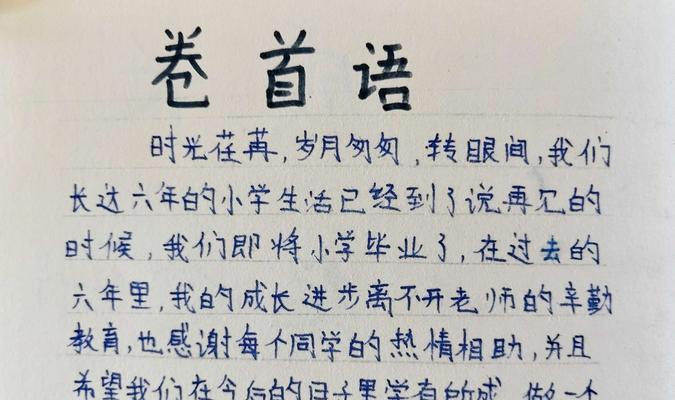 卷首语
时光荏苒,岁月匆匆,转眼间,我们
长达六年的小学生活已经到了说再见的
时候,我们即将小学毕业了,在过去的
六年里,我的成长进步离不开老师的辛勤
教育,也感谢每个同学的热情相助,并且
希望我们在今后的日子里学有所成,做一个